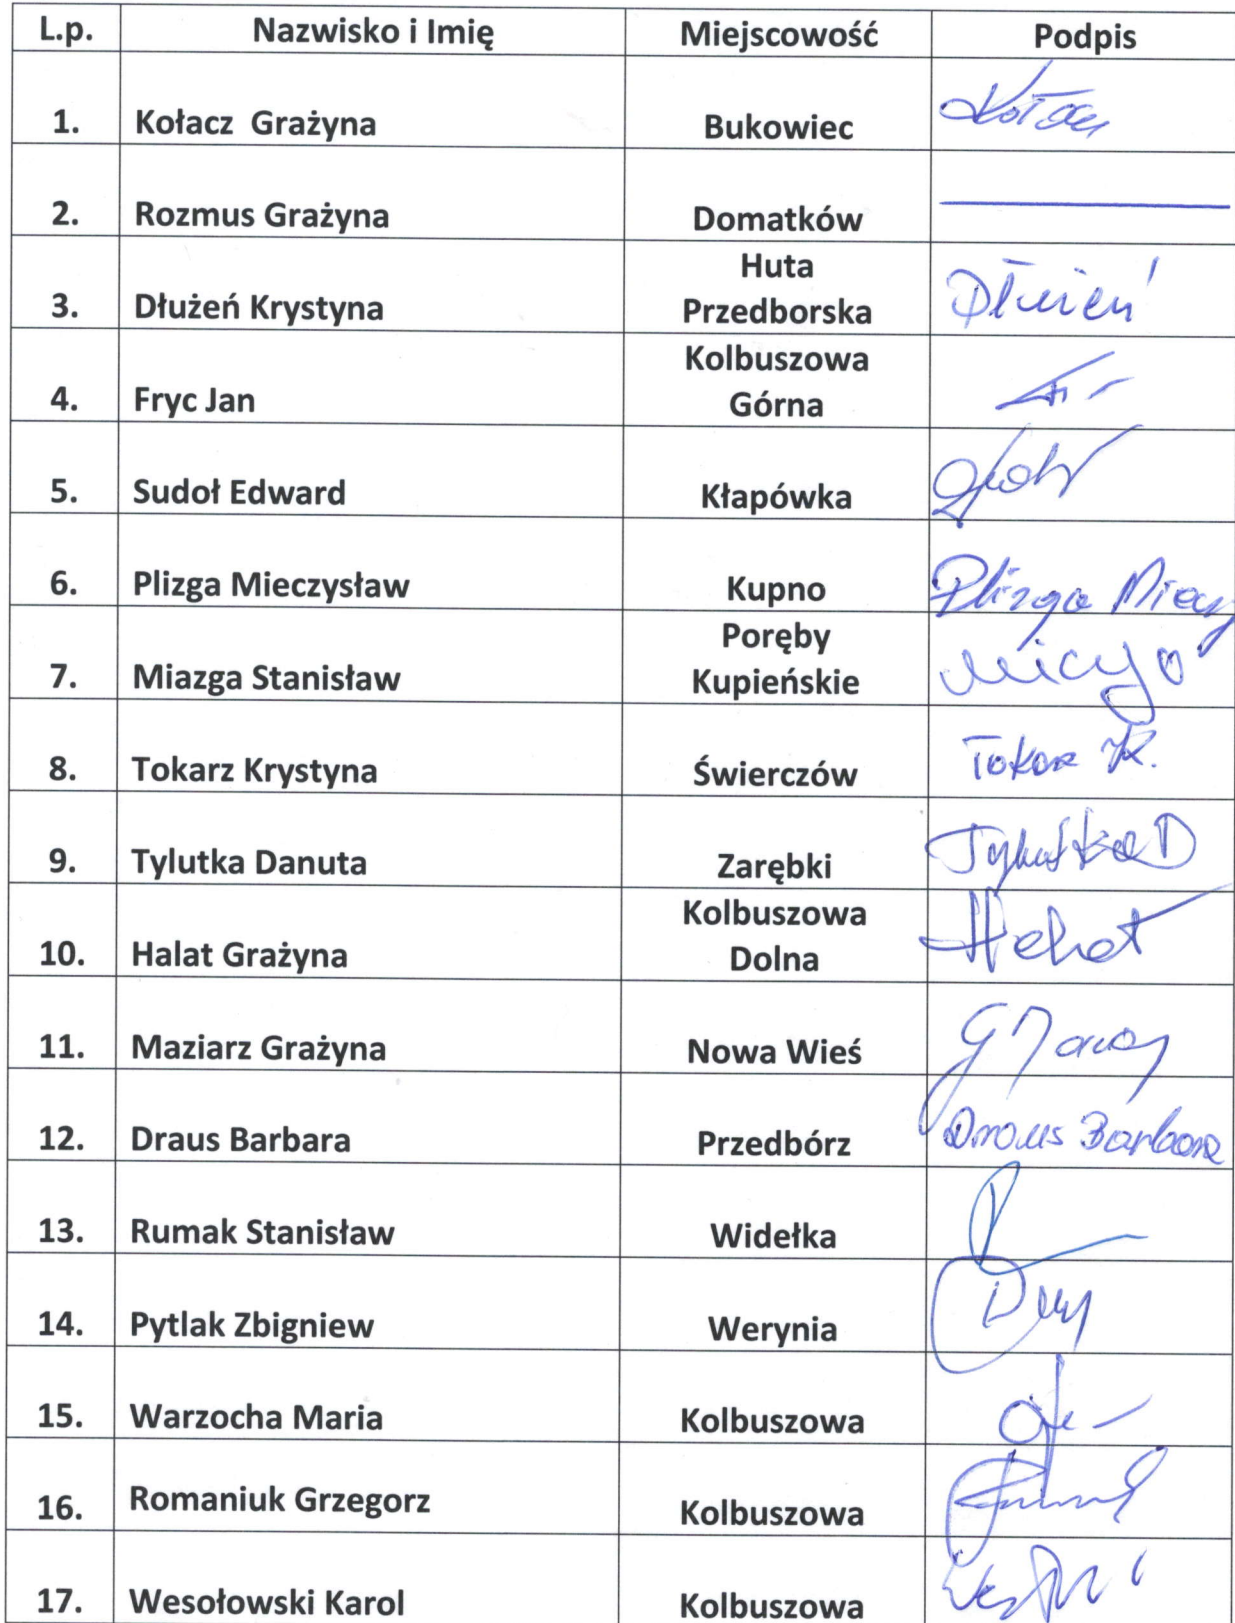 L.p. Nazwisko i Imię Miejscowość Podpis
1. Kołacz Grażyna Bukowiec
2. Rozmus Grażyna Domatków
3. Dłużeń Krystyna Huta Przedborska Dłużeń
4. Fryc Jan Kolbuszowa Górna
5. Sudoł Edward Kłapówka
6. Plizga Mieczysław Kupno Plizga Miecz
7. Miazga Stanisław Poręby Kupieńskie
8. Tokarz Krystyna Świerczów Tokarz K.
9. Tylutka Danuta Zarębki Tylutka D
10. Halat Grażyna Kolbuszowa Dolna Halat
11. Maziarz Grażyna Nowa Wieś
12. Draus Barbara Przedbórz Draus Barbara
13. Rumak Stanisław Widełka
14. Pytlak Zbigniew Werynia
15. Warzocha Maria Kolbuszowa
16. Romaniuk Grzegorz Kolbuszowa
17. Wesołowski Karol Kolbuszowa